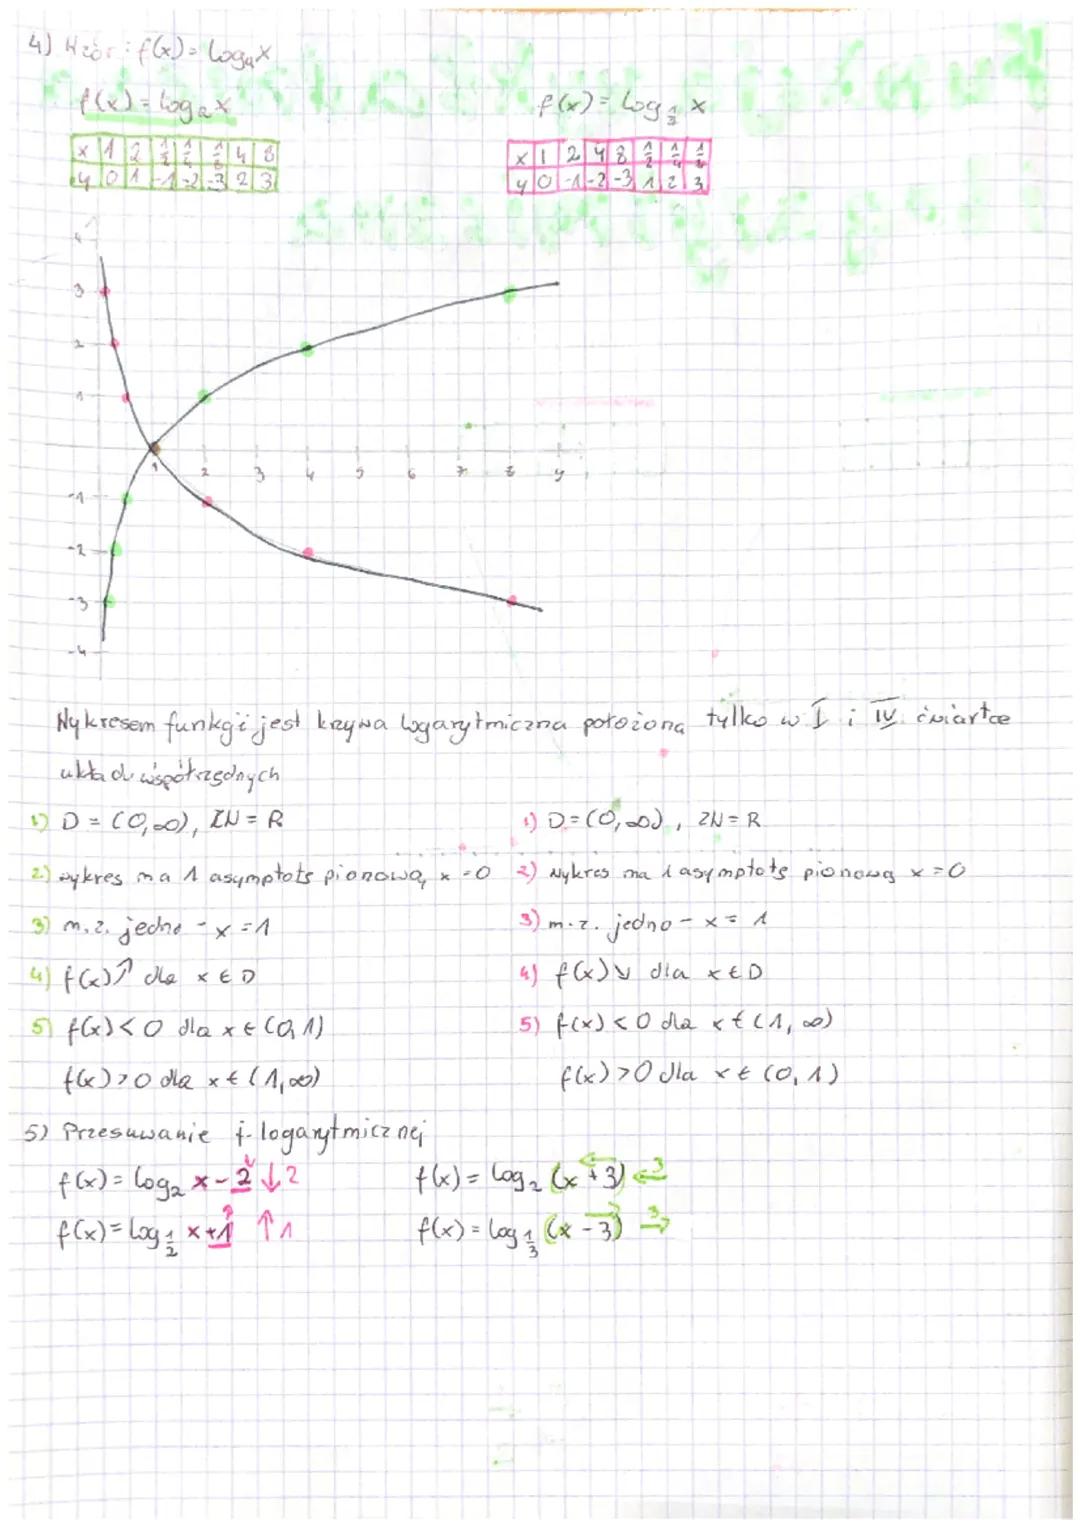 4) Wzór: f(x) = logₐx
f(x) = log₂x
f(x) = log½ x
x 1 2 ½ ¼ ⅛ 4 8
y 0 1 -1 -2 -3 2 3
x 1 2 4 8 ½ ¼ ⅛
y 0 -1 -2 -3 1 2 3
4
3
2
1
1 2 3 4 5 6 7 8 9
-1
-2
-3
-4
Wykresem funkcji jest krzywa logarytmiczna położona tylko w I i IV ćwiartce
układu współrzędnych
1) D = (0,∞), ZW = R
2) wykres ma 1 asymptotę pionową x = 0
3) m.z. jedno - x = 1
4) f(x)↗ dla x ∈ D
5) f(x) < 0 dla x ∈ (0,1)
f(x) > 0 dla x ∈ (1,∞)
1) D = (0,∞), ZW = R
2) Wykres ma 1 asymptotę pionową x = 0
3) m.z. jedno - x = 1
4) f(x)↘ dla x ∈ D
5) f(x) < 0 dla x ∈ (1, ∞)
f(x) > 0 dla x ∈ (0, 1)
5) Przesuwanie f. logarytmicznej
f(x) = log₂ x - 2 ↓2
f(x) = log½ x + 1 ↑1
f(x) = log₂ (x + 3) ← 3
f(x) = log⅓ (x - 3) 3 →